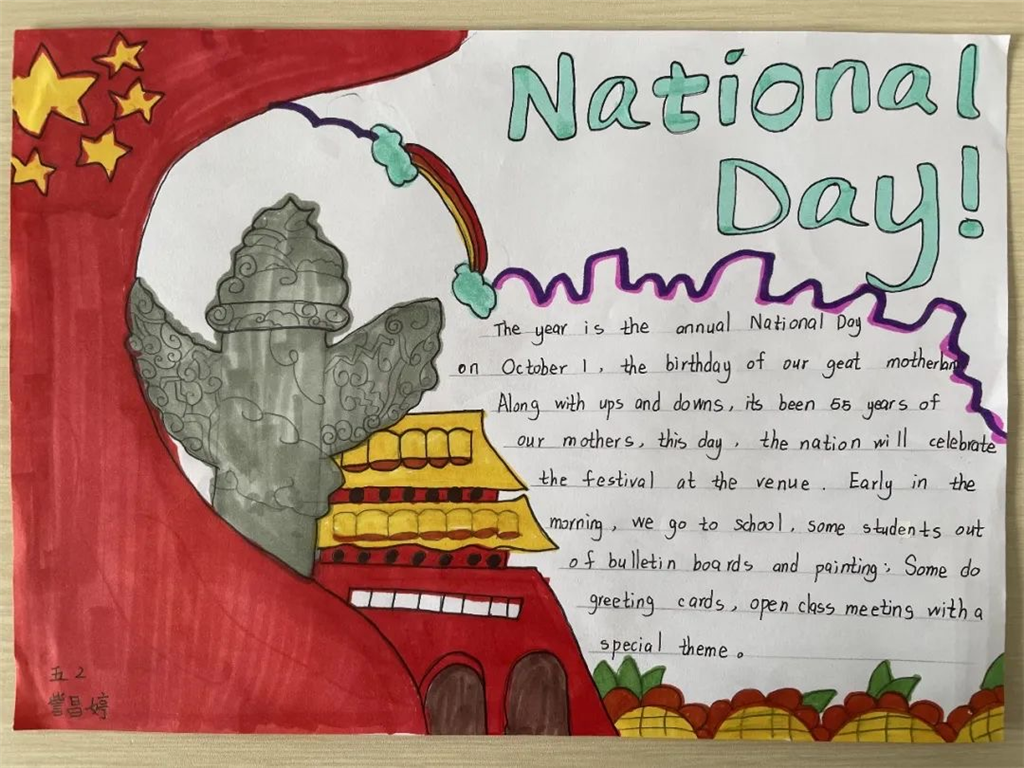 National
Day!
The year is the annual National Day
on October 1, the birthday of our geat
Along with ups and downs, its been 55 years of
our mothers, this day, the nation will celebrate
the festival at the venue. Early in the
morning, we go to school, some students out
of bulletin boards and painting; Some do
greeting cards, open class meeting with a
special theme。
五2
昌婷